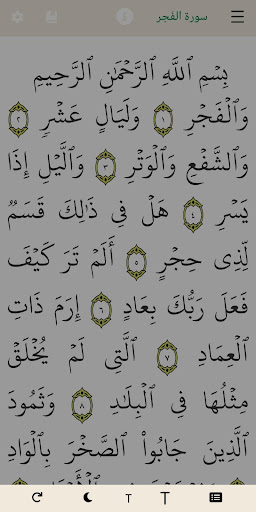 سورة الفجر
بِسْمِ اللَّهِ الرَّحْمَٰنِ الرَّحِيمِ
وَالْفَجْرِ ١ وَلَيَالٍ عَشْرٍ ٢
وَالشَّفْعِ وَالْوَتْرِ ٣ وَالَّيْلِ إِذَا
يَسْرِ ٤ هَلْ فِي ذَٰلِكَ قَسَمٌ
لِّذِي حِجْرٍ ٥ أَلَمْ تَرَ كَيْفَ
فَعَلَ رَبُّكَ بِعَادٍ ٦ إِرَمَ ذَاتِ
الْعِمَادِ ٧ الَّتِي لَمْ يُخْلَقْ
مِثْلُهَا فِي الْبِلَٰدِ ٨ وَثَمُودَ
الَّذِينَ جَابُوا۟ الصَّخْرَ بِالْوَادِ
T T